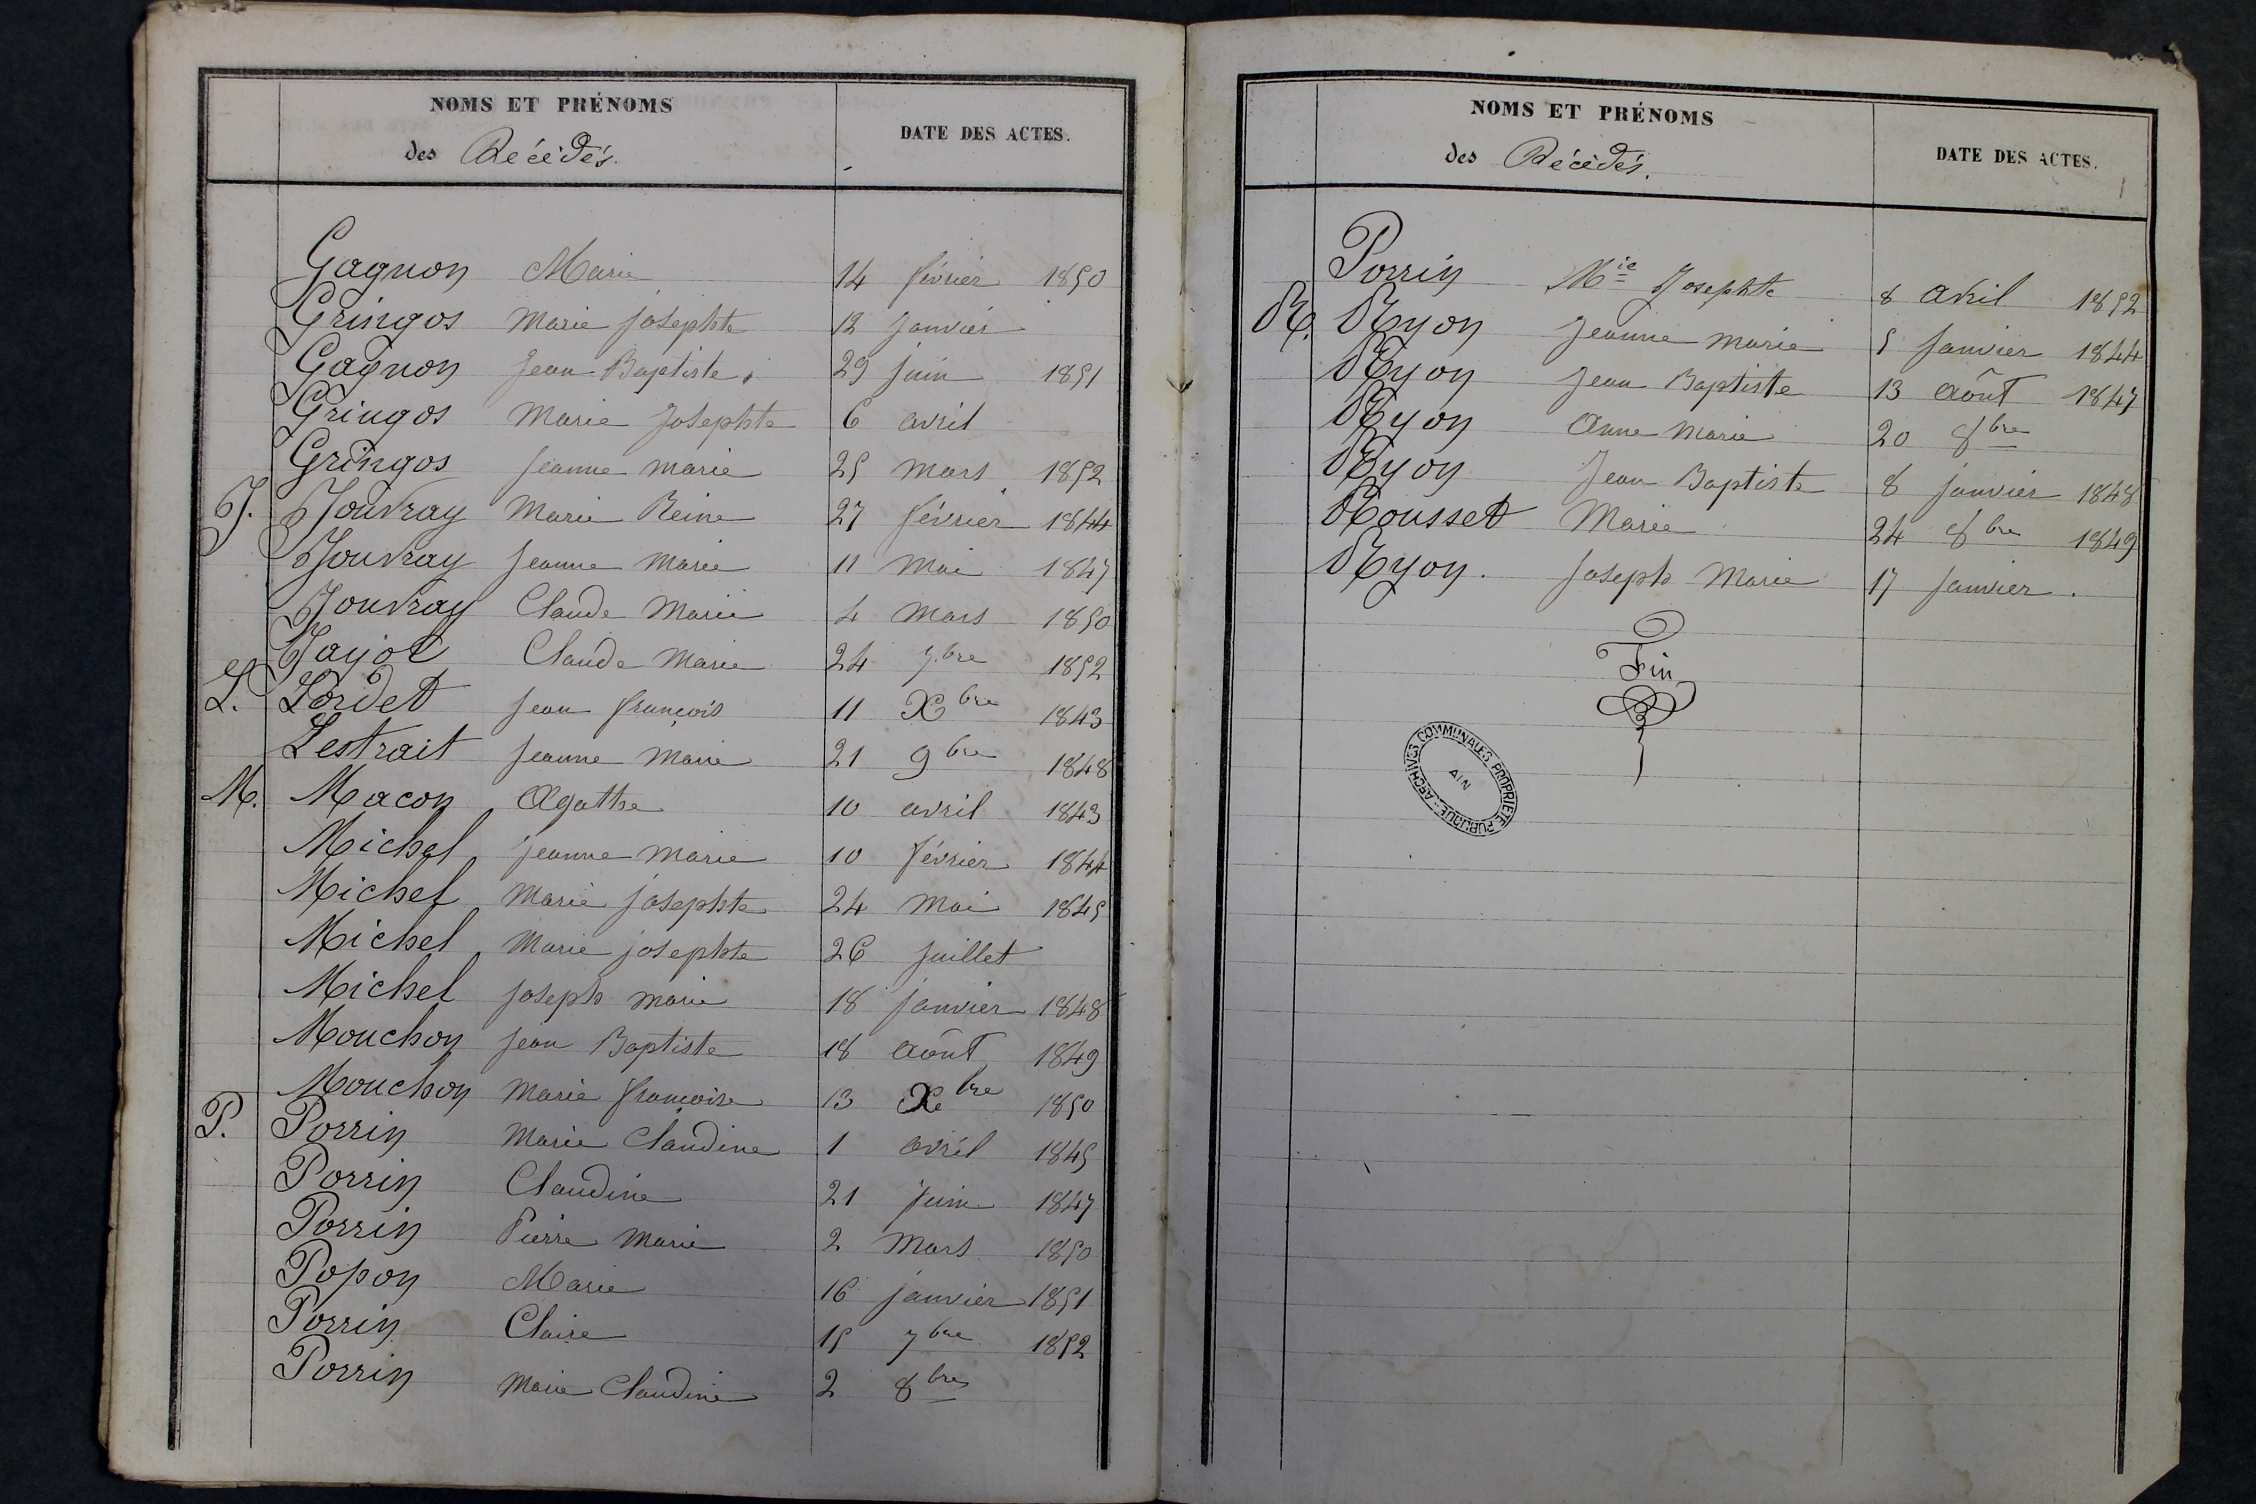 NOMS ET PRÉNOMS
des Décédés.
DATE DES ACTES.
Gagnon Marie 14 février 1850
Gringos Marie josephte 12 Janvier
Gagnon Jean Baptiste 29 juin 1851
Gringos Marie Josephte 6 avril
Gringos Jeanne marie 25 mars 1852
J. Jouvray Marie Reine 27 février 1844
Jouvray Jeanne Marie 11 Mai 1847
Jouvray Claude Marie 4 Mars 1850
Jayot Claude Marie 24 7bre 1852
L. Lordet Jean françois 11 Xbre 1843
Lestrait Jeanne Marie 21 9bre 1848
M. Macon Agathe 10 avril 1843
Michel jeanne Marie 10 février 1844
Michel Marie josephte 24 Mai 1845
Michel Marie josephte 26 Juillet
Michel Joseph marie 18 janvier 1848
Mouchon Jean Baptiste 18 Août 1849
Mouchon Marie françoise 13 Xbre 1850
P. Porrin Marie Claudine 1 avril 1845
Porrin Claudine 21 Juin 1847
Porrin Pierre Marie 2 Mars 1850
Popon Marie 16 janvier 1851
Porrin Claire 15 7bre 1852
Porrin Marie Claudine 2 8bre
NOMS ET PRÉNOMS
des Décédés.
DATE DES ACTES.
Porrin Mie Josephte 8 Avril 1852
R. Ryon Jeanne marie 5 Janvier 1844
Ryon Jean Baptiste 13 Août 1847
Ryon Anne Marie 20 8bre
Ryon Jean Baptiste 8 janvier 1848
Rousset Marie 24 8bre 1849
Ryon. Joseph Marie 17 Janvier.
Fin
ARCHIVES COMMUNALES PROPRIÉTÉ PUBLIQUE
AIN